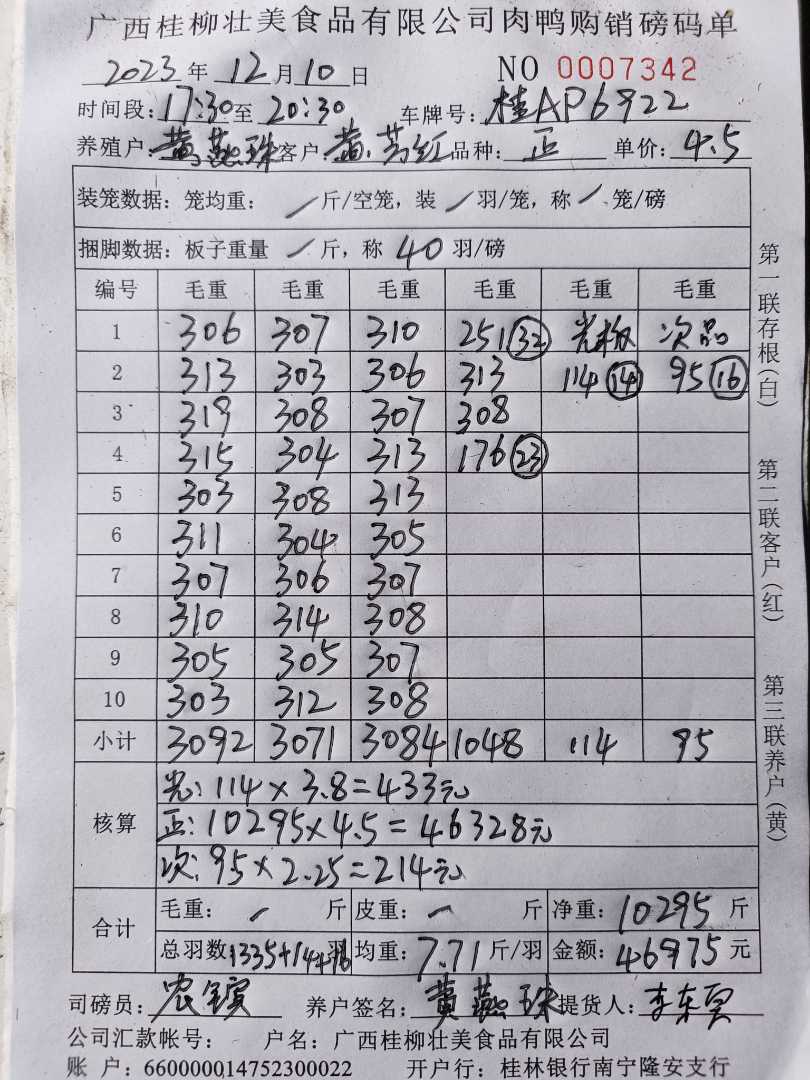 广西桂柳壮美食品有限公司肉鸭购销磅码单
2023年12月10日 NO 0007342
时间段:17:30至20:30 车牌号:桂AP6922
养殖户:黄燕珠 客户:黄 红 品种:正 单价:4.5
装笼数据:笼均重:/斤/空笼,装/羽/笼,称/笼/磅
捆脚数据:板子重量/斤,称40羽/磅
编号 毛重 毛重 毛重 毛重 毛重 毛重
1 306 307 310 251(32) 光板 次品
2 313 303 306 313 114(14) 95(16)
3 319 308 307 308
4 315 304 313 176(23)
5 303 308 313
6 311 304 305
7 307 306 307
8 310 314 308
9 305 305 307
10 303 312 308
小计 3092 3071 3084 1048 114 95
核算 光:114×3.8=433元
正:10295×4.5=46328元
次:95×2.25=214元
合计 毛重:/斤 皮重:/斤 净重:10295斤
总羽数1335+14+16 均重:7.71斤/羽 金额:46975元
司磅员:农 养户签名:黄燕珠 提货人:李东
公司汇款帐号: 户名:广西桂柳壮美食品有限公司
账 户:660000014752300022 开户行:桂林银行南宁隆安支行
第一联存根(白)
第二联客户(红)
第三联养户(黄)